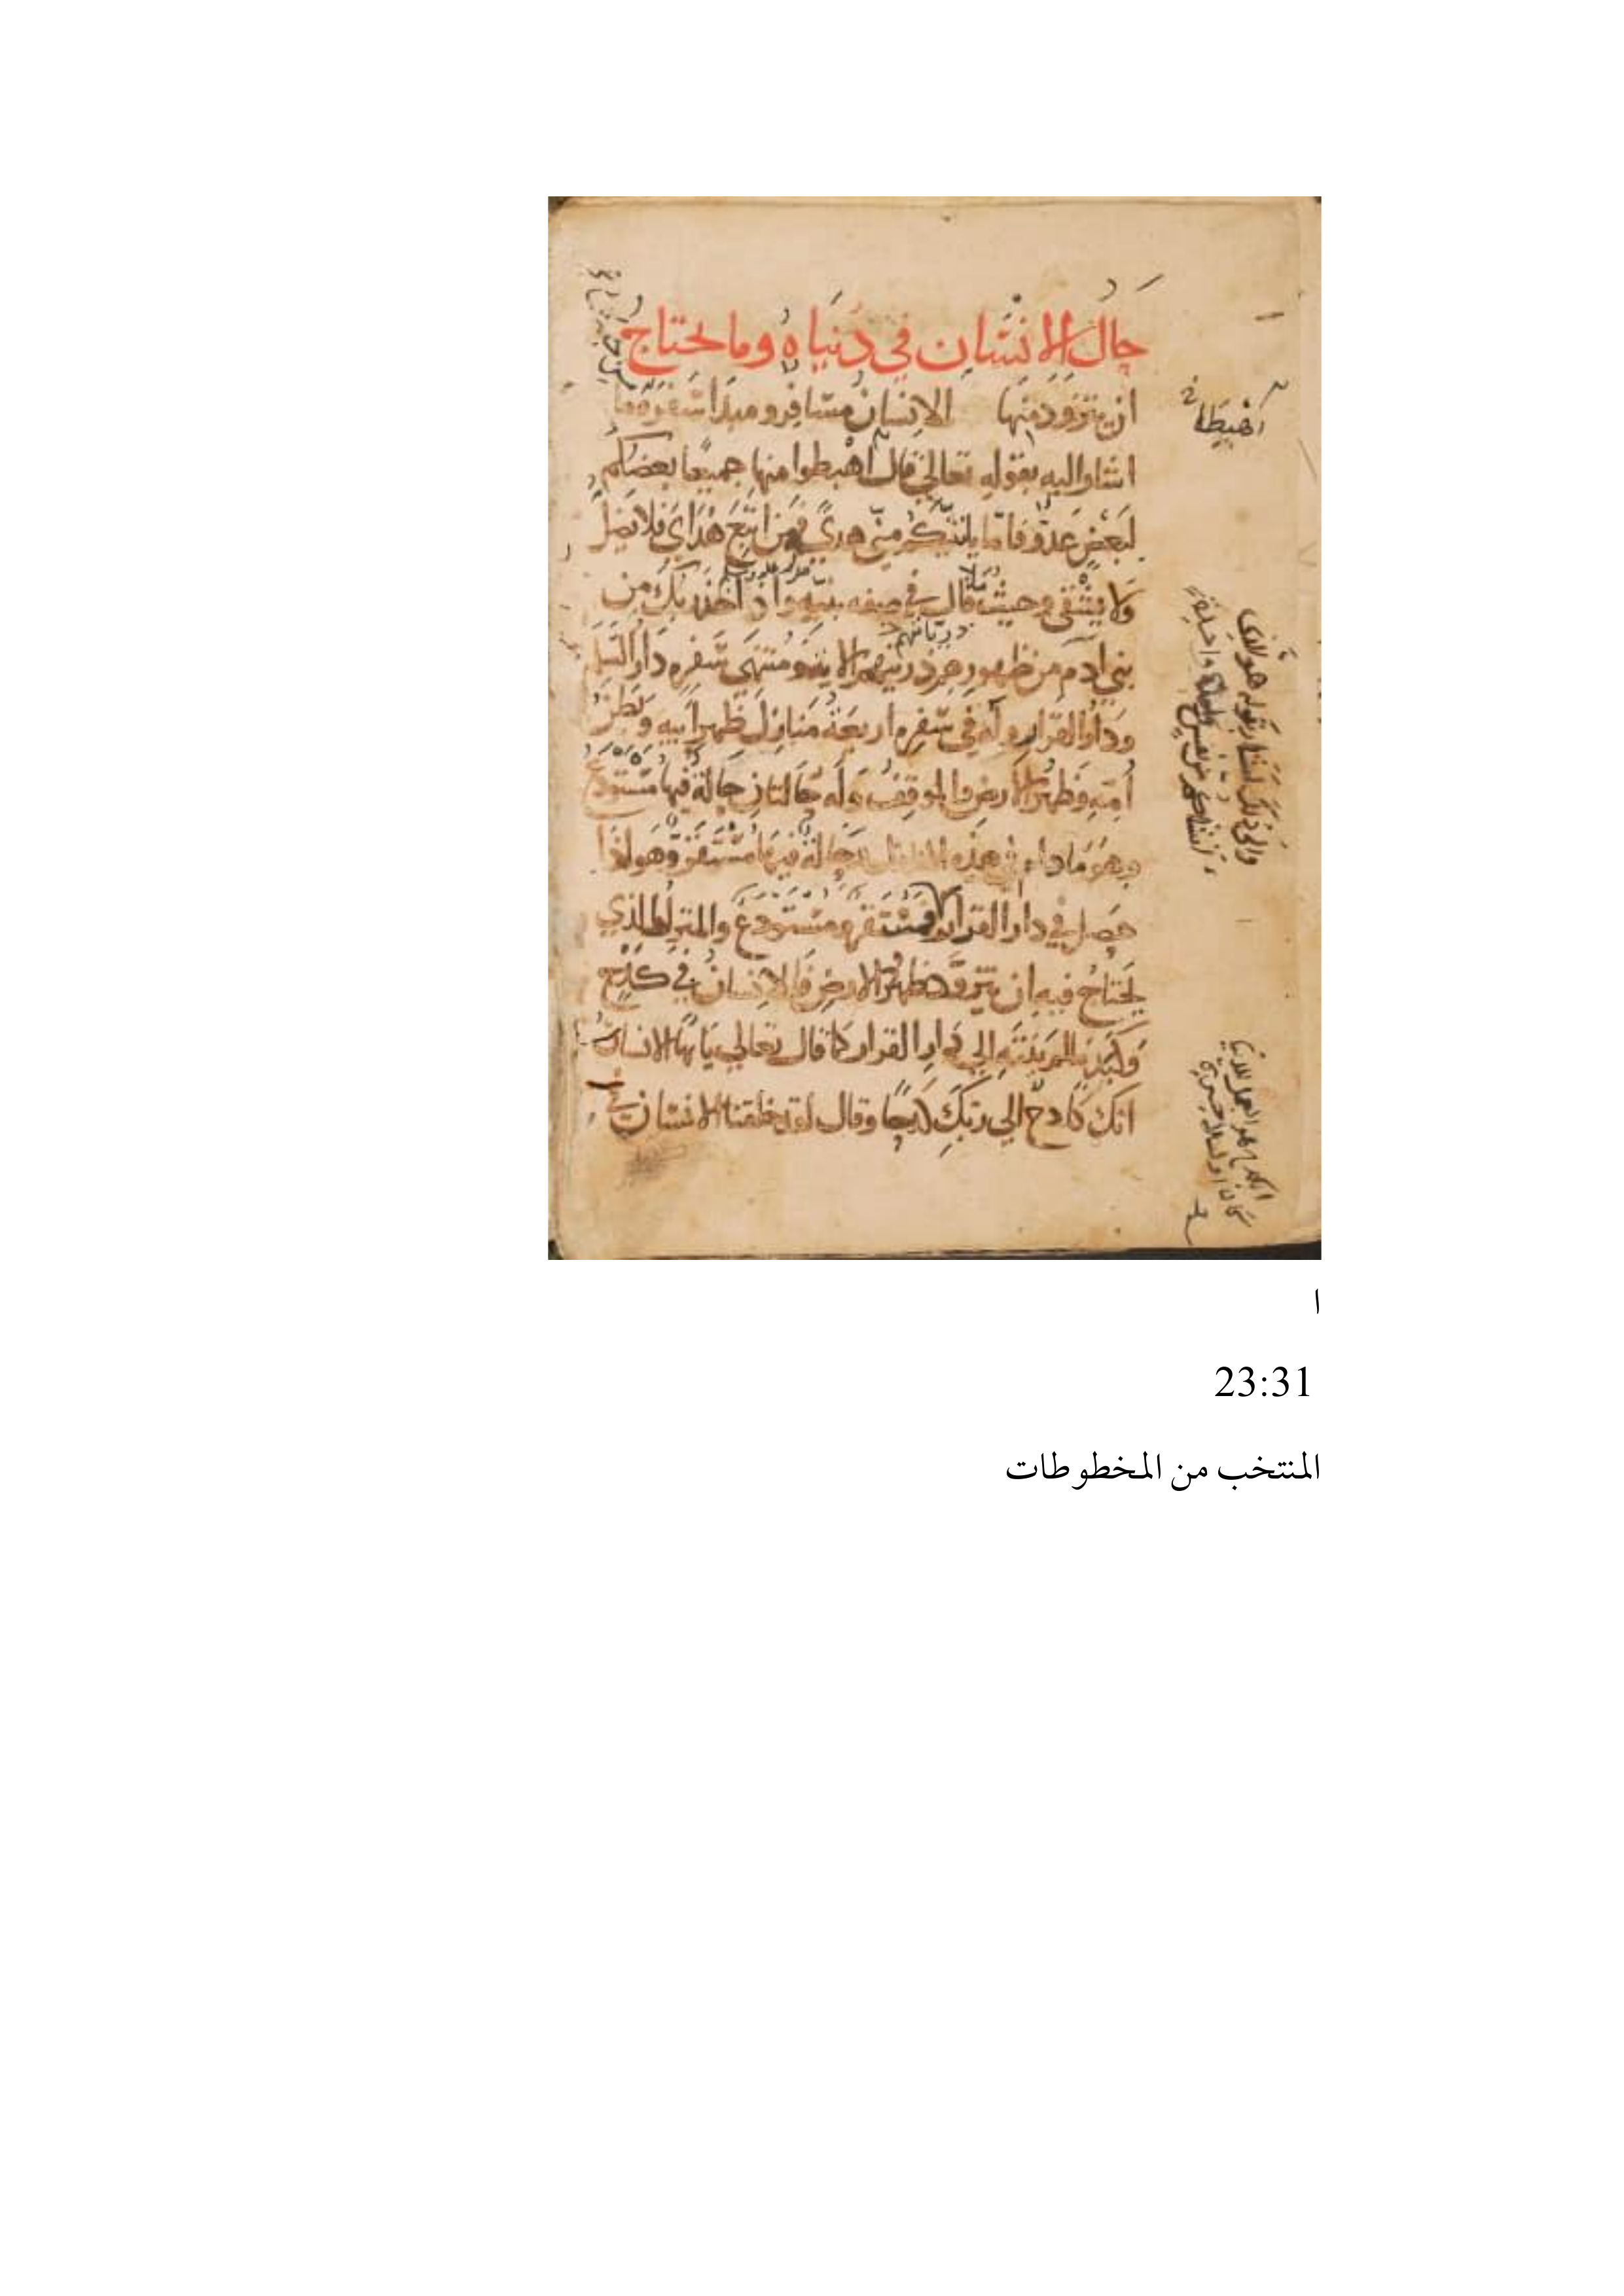 حال الانسان في دنياه وما يحتاج
ان يتزود منها الانسان مسافر ومبدا سفره ما
اشار اليه بقوله تعالى قال اهبطوا منها جميعا بعضكم
لبعض عدو فاما ياتينكم مني هدى فمن اتبع هداي فلا يضل
ولا يشقى وحيث قال في صفه بنيه واذ اخذ ربك من
بني ادم من ظهورهم ذريتهم الاية ومنتهى سفره دار السلام
ودار القرار وله في سفره اربعة منازل ظهر ابيه وبطن
امه وظهر الارض والموقف وله حالتان حالة فيها مستودع
وهو ما دام في هذه المنازل وحالة فيها مستقر وهو اذا
حصل في دار القرار مستقر ومستودع والمنزل الذي
يحتاج فيه ان يتزود ظهر الارض فالانسان في كدح
وكبد ما لم ينته الى دار القرار كما قال تعالى يا ايها الانسان
انك كادح الى ربك كدحا وقال لقد خلقنا الانسان في
اهبطا
والى ذلك اشار بقوله هو الذي
انشاكم من نفس واحدة
ا
23:31
المنتخب من المخطوطات